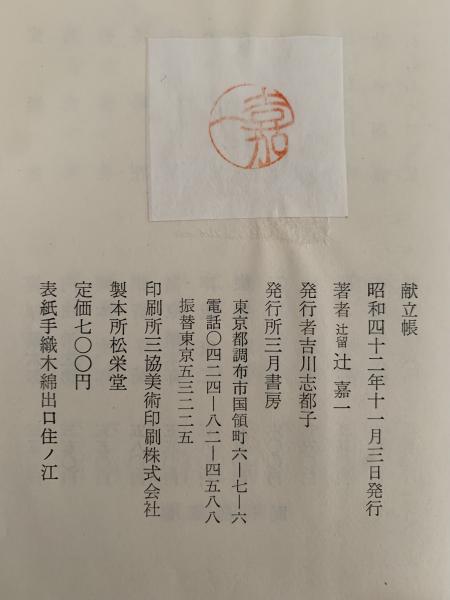 嘉一
献立帳
昭和四十二年十一月三日発行
著者 辻留 辻 嘉一
発行者吉川志都子
発行所三月書房
東京都調布市国領町六ー七ー六
電話〇四二四ー八二ー四五八八
振替東京五三二二五
印刷所三協美術印刷株式会社
製本所松栄堂
定価七〇〇円
表紙手織木綿出口住ノ江